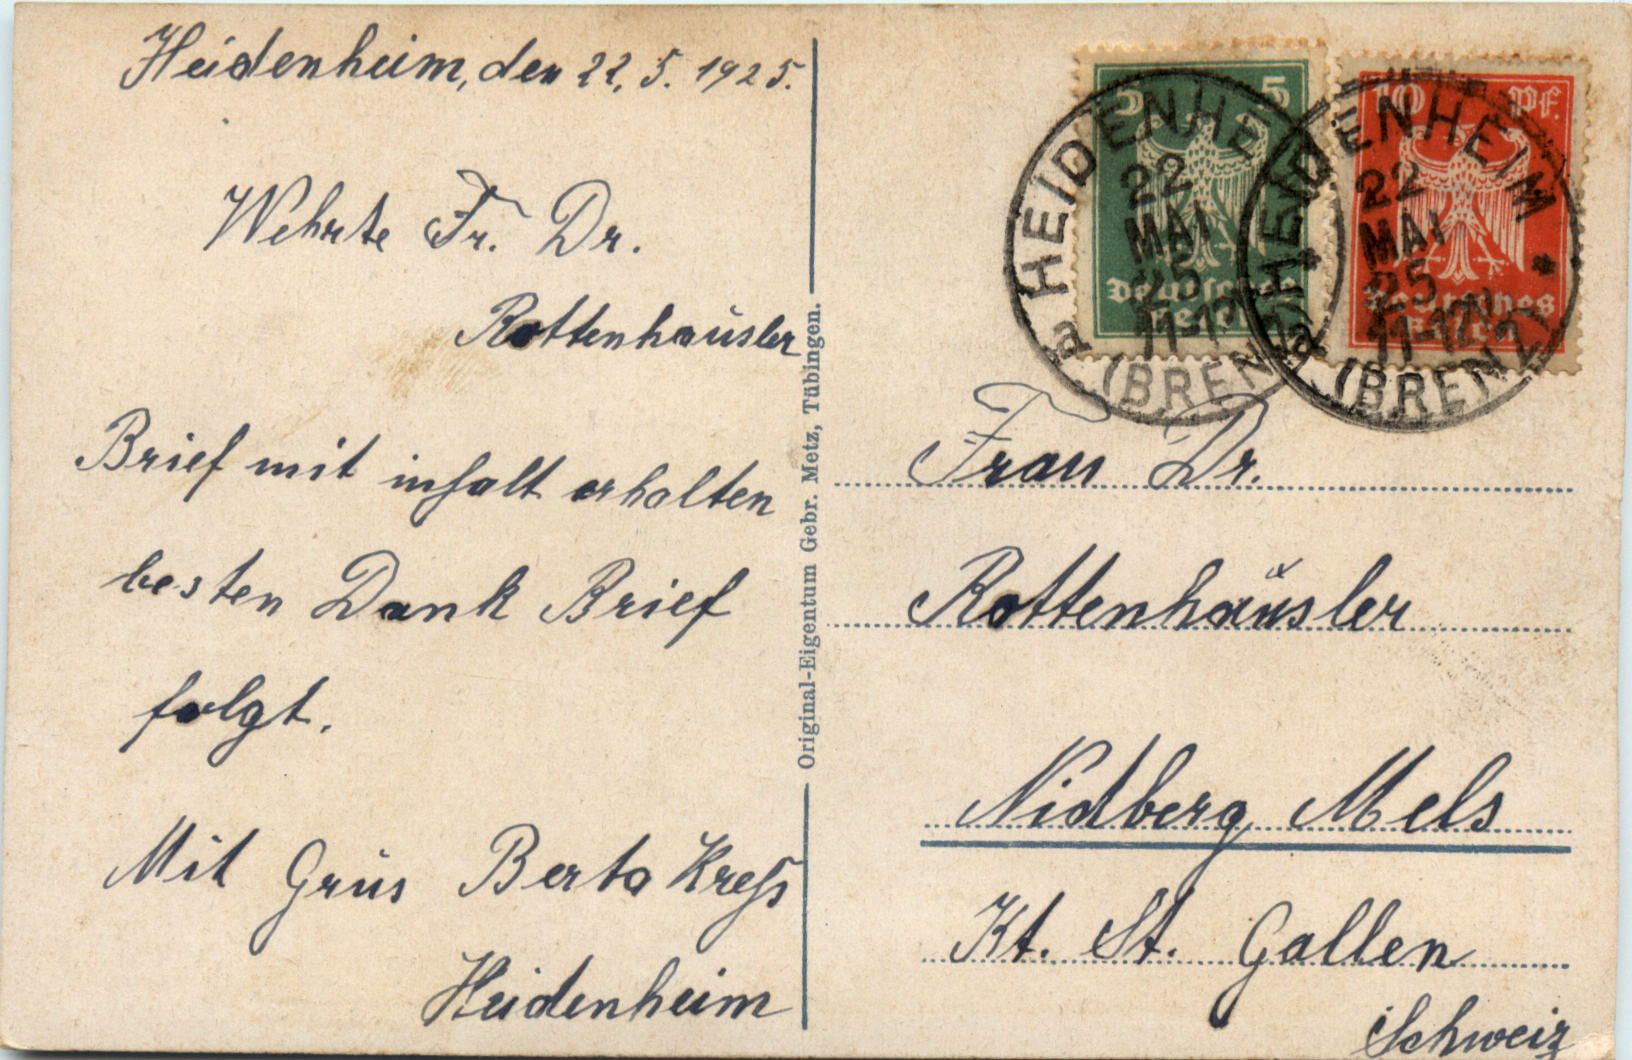 Heidenheim, den 22. 5. 1925.
Wehrte Fr. Dr.
Rottenhäusler
Brief mit inhalt erhalten
besten Dank Brief
folgt.
Mit Grüs Berta Kreſs
Heidenheim
Original-Eigentum Gebr. Metz, Tübingen.
5 5
Deutsches
Reich
10 Pf.
Deutsches
Reich
HEIDENHEIM
22
MAI
25
11-12
a (BRENZ)
HEIDENHEIM
22
MAI
25
11-12
a (BRENZ)
Frau Dr.
Rottenhäusler
Nidberg Mels
Kt. St. Gallen
Schweiz